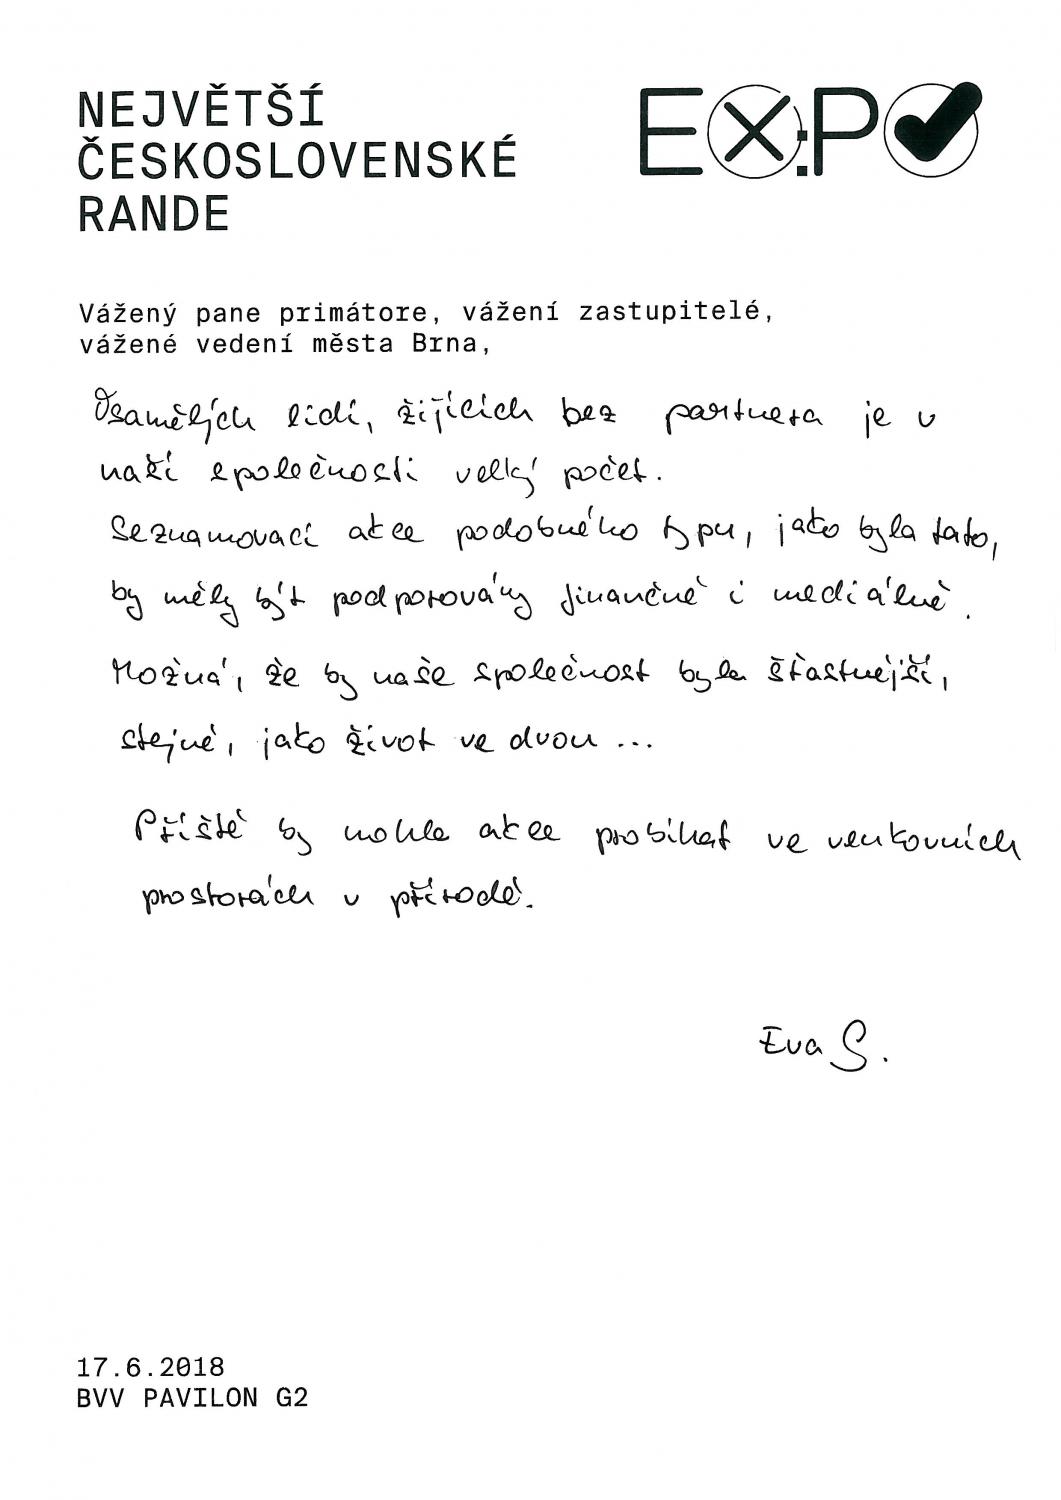 NEJVĚTŠÍ
ČESKOSLOVENSKÉ
RANDE
EX:PO
Vážený pane primátore, vážení zastupitelé,
vážené vedení města Brna,
Osamělých lidí, žijících bez partnera je v
naší společnosti velký počet.
Seznamovací akce podobného typu, jako byla tato,
by měly být podporovány finančně i mediálně.
Možná, že by naše společnost byla šťastnější,
stejně, jako život ve dvou ...
Příště by mohla akce probíhat ve venkovních
prostorách v přírodě.
Eva S.
17.6.2018
BVV PAVILON G2